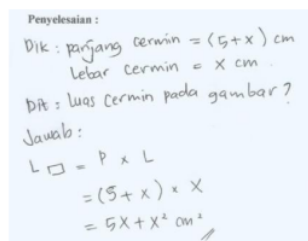 Penyelesaian :
Dik : panjang cermin = (5+x) cm
Lebar cermin = x cm.
Dit : luas cermin pada gambar?
Jawab :
L □ = P x L
= (5+x) x X
= 5x + x² cm²